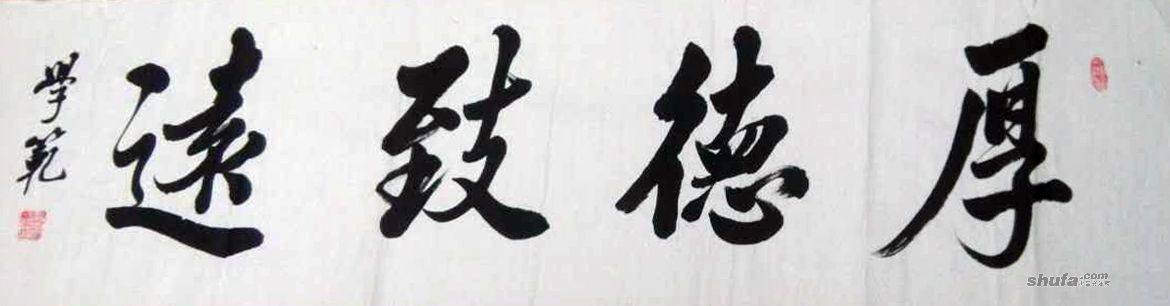 厚德致遠
學範
shufa.com